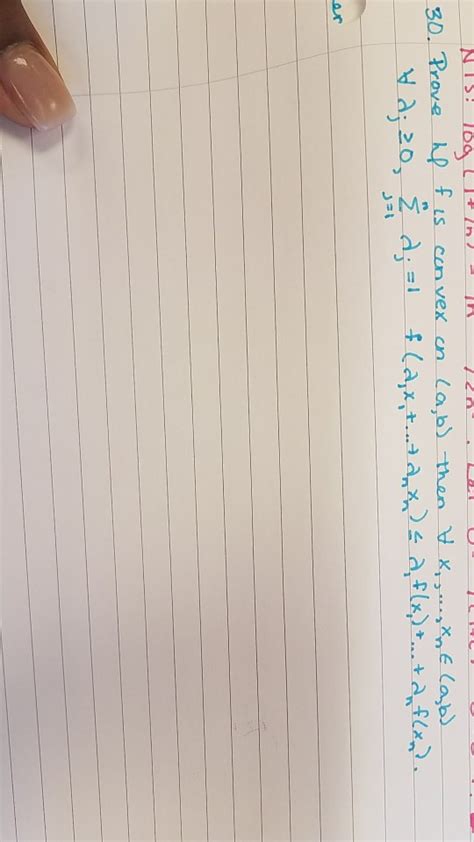 NTS: log(1+
30. Prove if f is convex on (a,b) then ∀ x₁,...,xₙ ∈ (a,b)
∀ λⱼ ≥ 0, Σⁿⱼ₌₁ λⱼ = 1 f(λ₁x₁+...+λₙxₙ) ≤ λ₁f(x₁)+...+λₙf(xₙ).
er